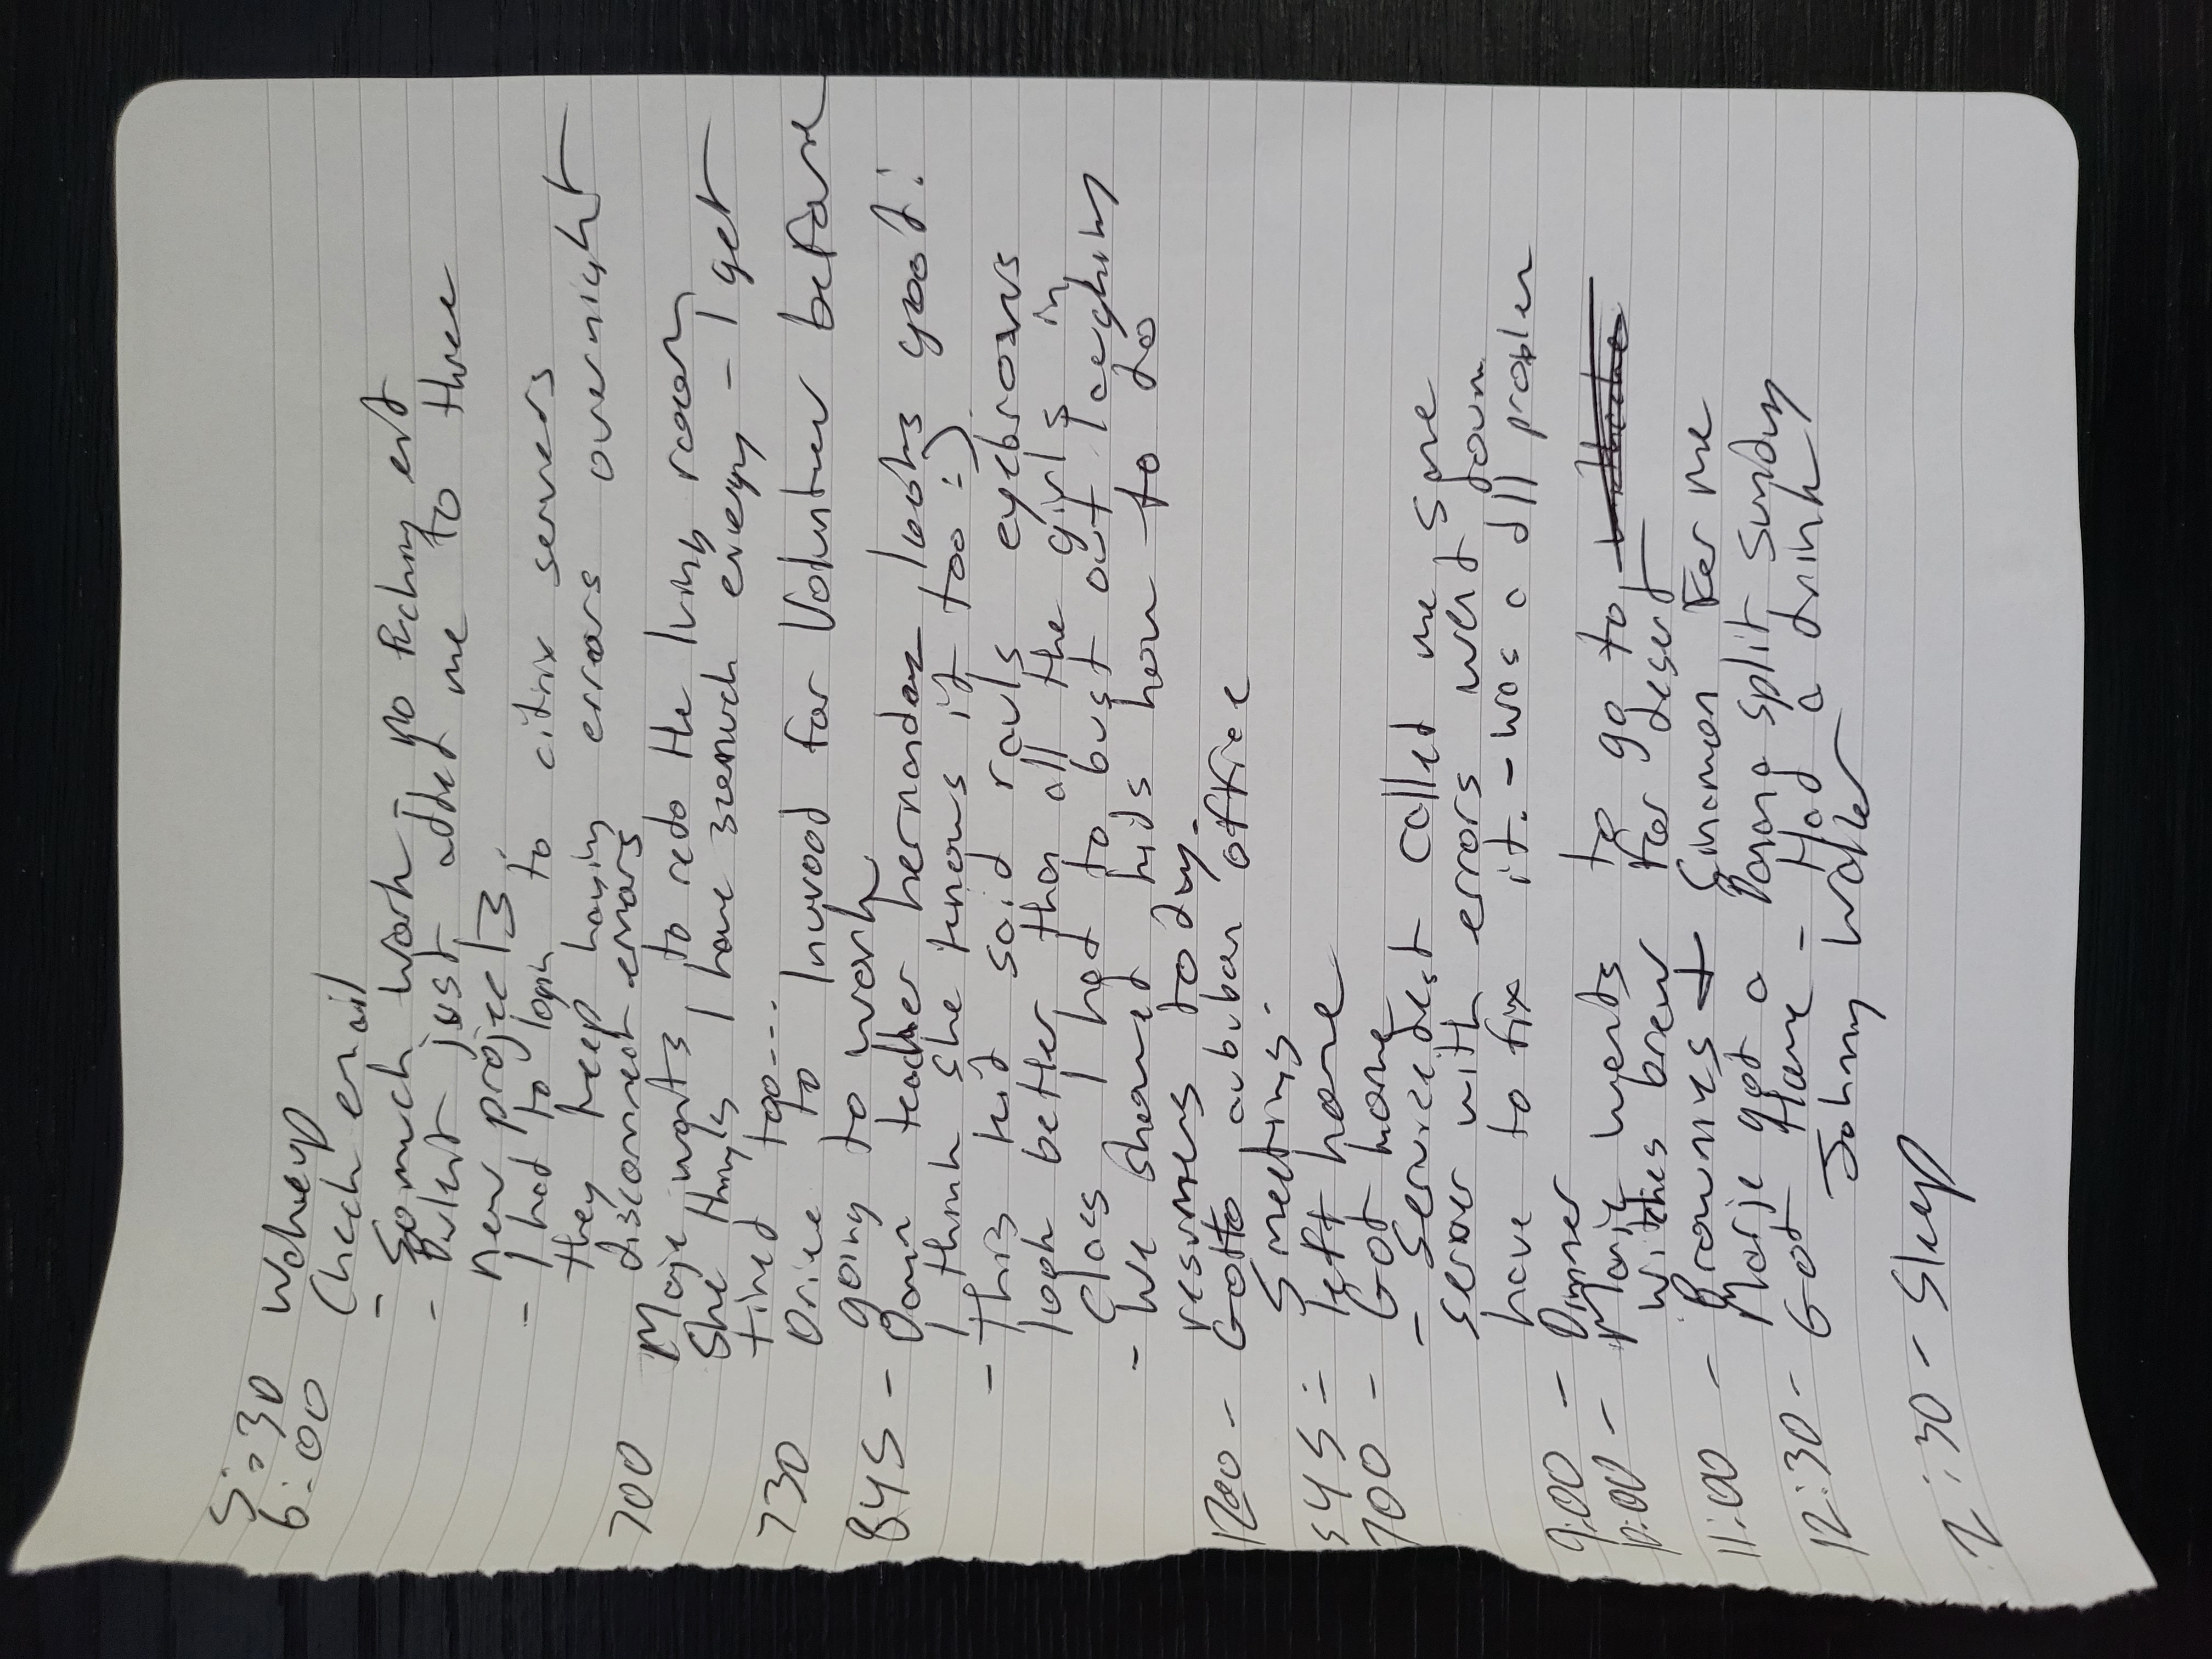 5:30 Wakeup
6:00 Check email
- Somuch work - no end
- just added me to three
new projects.
- I had to login to citrix servers
they keep having errors overnight
disconnect errors
700 Marje wants to redo the living room
She thinks I have soomuch energy - I get
tired too...
730 Drive to Inwood for Volunteer before
going to work
845 - Damn teacher hernandez looks good!
I think she knows it too :).
- This kid said rauls eyebrows
look better than all the girls in
class I had to bust out laughing
- We showed kids how to do
resumes today.
1200 - Gotto office
5 meetings.
545 - left home
700 - Got home
- Servicedesk called me, some
server with errors went down
have to fix it. - was a dll problem
9:00 - Dinner
10:00 - Marje wants to go to
witches brew for desert
11:00 - Brownies + Cinamon For me
Marje got a Banana split, Sunday
12:30 - Got Home - Had a drink
Johnny Walker
2:30 - Sleep